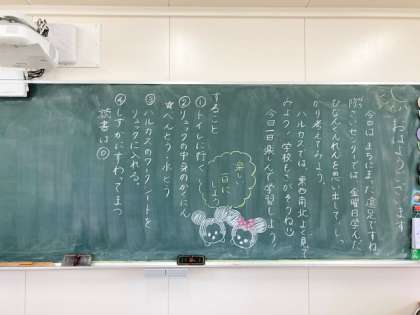 おはようございます
今日は、まちにまった遠足ですね。
ぼうさいセンターでは、金曜日学んだ
ひなんくんれんを思い出して、しっ
かり考えてみよう。
ハルカスでは、東西南北よく見て
みよう。学校もさがそうね
今日一日楽しんで学習しよう。
楽しい
一日に
しよう
すること
①トイレに行く
②リュックの中身のかくにん
☆べんとう・水とう
③ハルカスのワークシートを
リュックに入れる。
④しずかにすわってまつ
読書は○